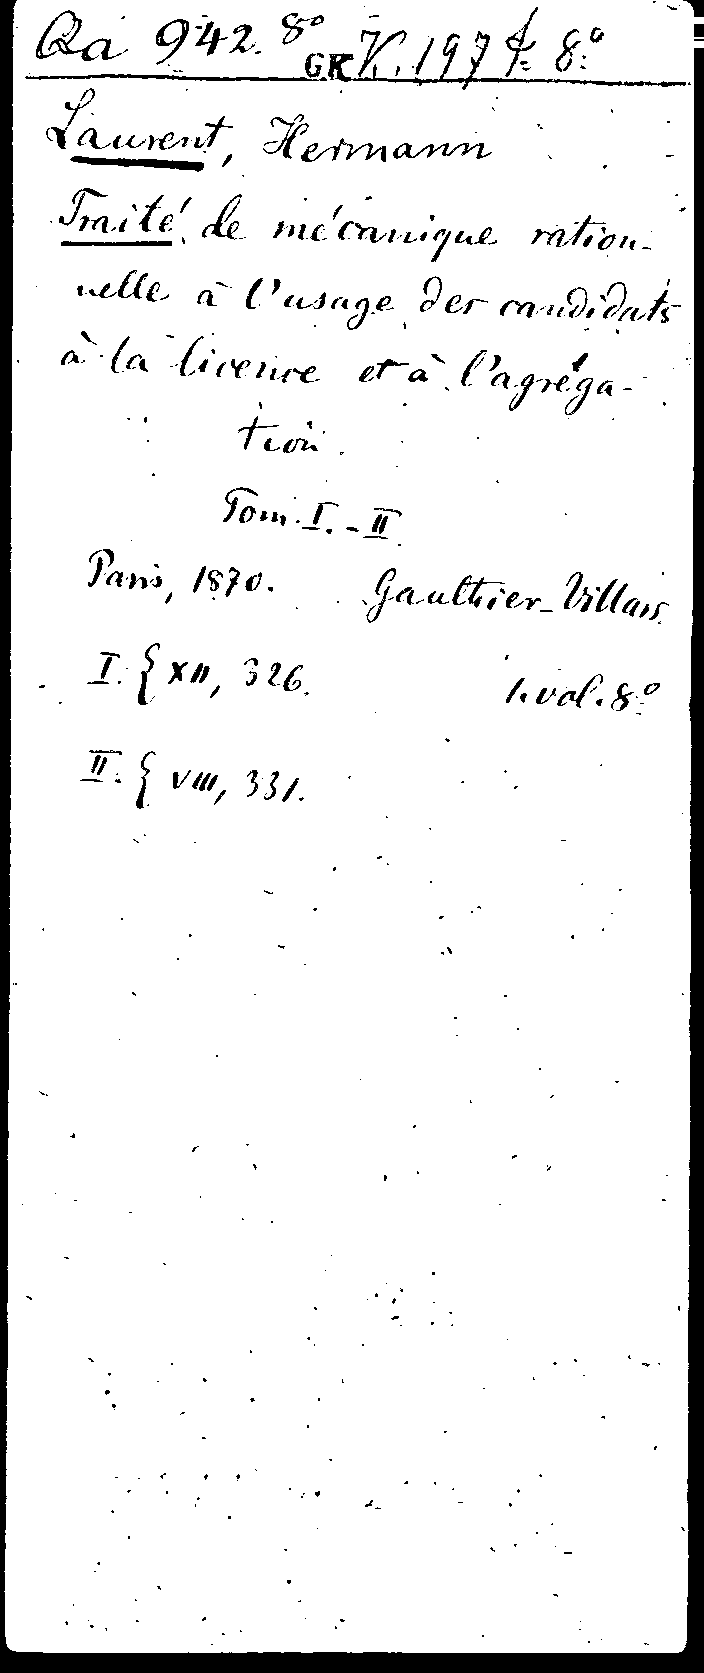 Qa 942. 8°
GK V. 197 8°
Laurent, Hermann
Traité de mécanique ration-
nelle à l'usage des candidats
à la licence et à l'agréga-
tion.
Tom. I. - II
Paris, 1870. Gauthier-Villars
I. { XII, 326. 1. vol. 8°
II. { VIII, 331.